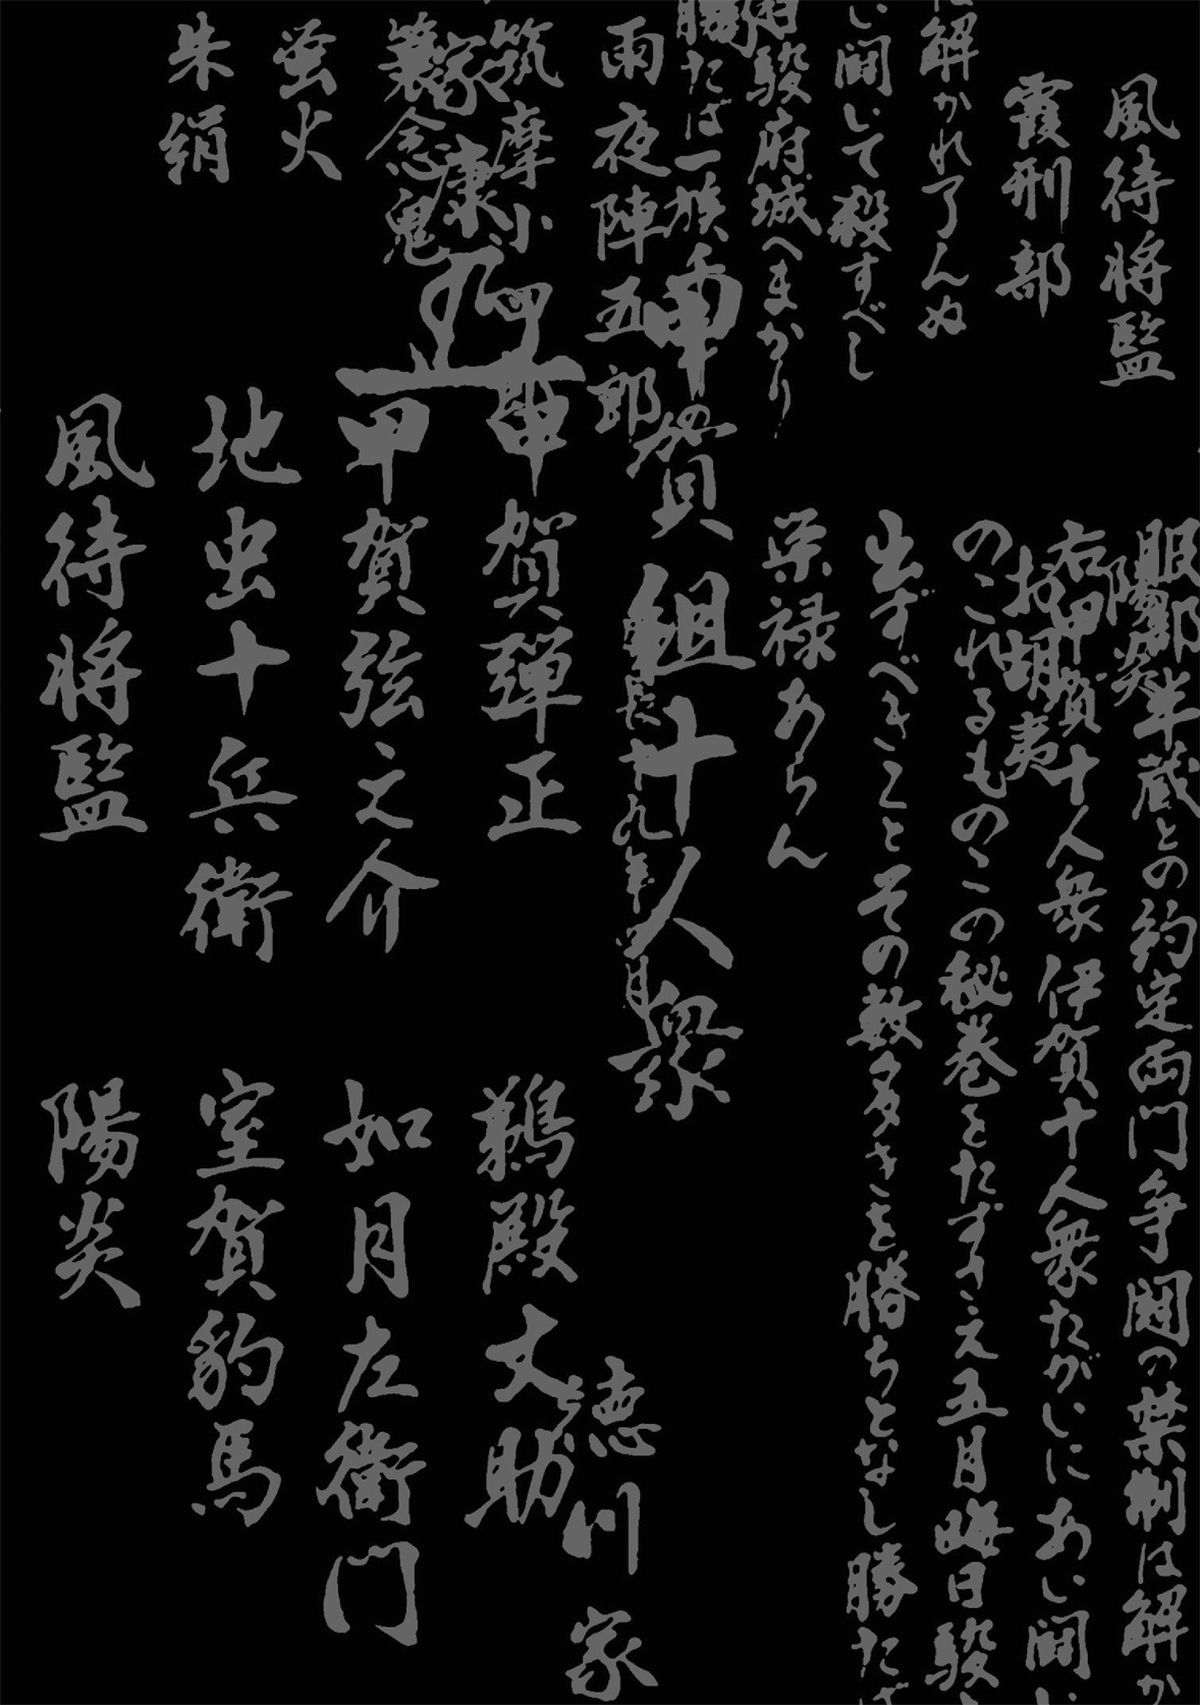 風待将監
霞刑部
に解かれ了んぬ
い闘いて殺すべし
駿府城へまかり
勝たば一族
雨夜陣五郎
筑摩小四郎
家康
蓑念鬼
蛍火
朱絹
服部半蔵との約定両門争闘の禁制は解か
陽炎
右甲賀十人衆伊賀十人衆たがいにあい闘い
お胡夷
のこれるものこの秘巻をたずさえ五月晦日駿
出ずべきことその数多きを勝ちとなし勝たば
栄禄あらん
甲賀組十人衆
慶長十九年四月
徳川家
甲賀弾正
鵜殿丈助
甲賀弦之介
如月左衛門
地虫十兵衛
室賀豹馬
風待将監
陽炎